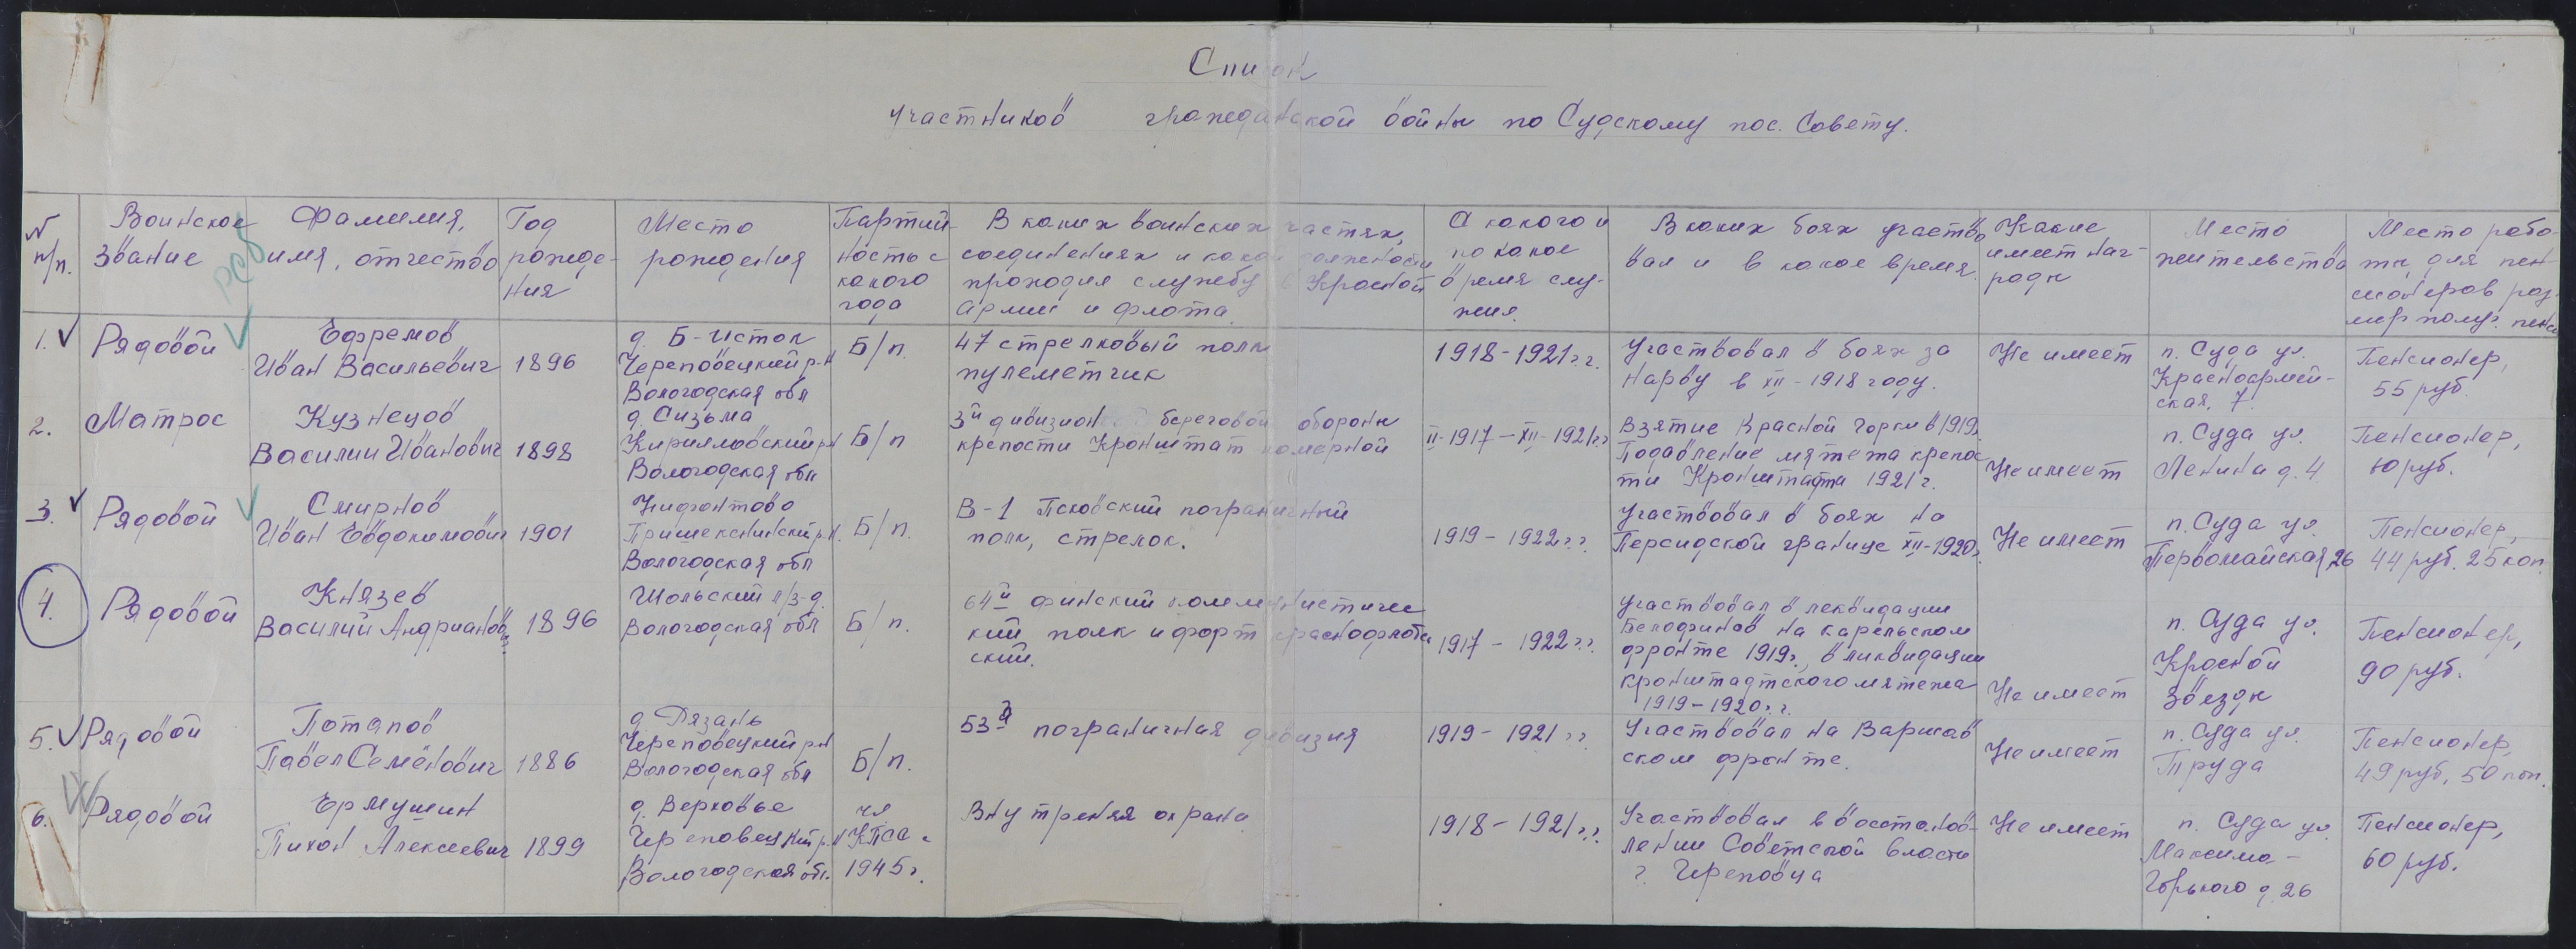 Список
участников гражданской войны по Судскому пос. Совету.
N п/п.
Воинское звание
Фамилия, имя, отчество
Год рожде-
ния
Место рождения
Партий-
ность с
какого
года
В каких воинских частях,
соединениях и какой должности
проходил службу в Красной
Армии и флота.
С какого и
по какое
время слу-
жил.
В каких боях участво
вал и в какое время.
Какие
имеет наг-
рады
Место
жительства
Место рабо-
ты, для пен
сионеров раз-
мер получ. пенс
1.
Рядовой
Ефремов
Иван Васильевич
1896
д. Б-Исток
Череповецкий р-н
Вологодская обл
Б/п.
47 стрелковый полк
пулеметчик
1918-1921г.г.
Участвовал в боях за
Нарву в XII-1918 году.
Не имеет
п. Суда ул.
Красноармей-
ская, 7.
Пенсионер,
55 руб.
2.
Матрос
Кузнецов
Василий Иванович
1898
д. Сизьма
Кирилловский р-н
Вологодская обл
Б/п
3й дивизион береговой обороны
крепости Кронштат
II-1917-XII-1921г.г
Взятие Красной Горки в 1919г.
Подавление мятета крепос
ти Кронштатта 1921г.
Не имеет
п. Суда ул.
Ленина д. 4
Пенсионер,
руб.
3.
Рядовой
Смирнов
Иван Евдокимович
1901
Нифонтово
Пришекснинский р-н.
Вологодская обл
Б/п.
В-1 Псковский пограничный
полк, стрелок.
1919-1922г.г.
Участвовал в боях на
Персидской границе XII-1920г.
Не имеет
п. Суда ул.
Первомайская, 26
Пенсионер,
44 руб. 25 коп.
4.
Рядовой
Князев
Василий Андрианович
1896
Шольский л/з-д.
Вологодская обл
Б/п.
64й финский коммунистичес
кий полк и форт краснофлотс
ский.
1917-1922г.г.
Участвовал в леквидации
Белофинов на карельском
фронте 1919г., в ликвидации
кронштадтского мятежа
1919-1920г.г.
Не имеет
п. Суда ул.
Красной
звезды
Пенсионер,
90 руб.
5.
Рядовой
Потапов
Павел Семёнович
1886
д. Рязань
Череповецкий р-н
Вологодская обл
Б/п.
53я пограничная дивизия
1919-1921г.г.
Участвовал на Варшав
ском фронте.
Не имеет
п. Суда ул.
Труда
Пенсионер,
49 руб, 50 коп.
6.
Рядовой
Ермушин
Тихон Алексеевич
1899
д. Верховье
Череповецкий р-н
Вологодская обл.
чл
КПСС с
1945г.
Внутреняя охрана
1918-1921г.г.
Участвовал в востанов-
лении Советской власти
г. Череповца
Не имеет
п. Суда ул.
Максима-
Горького д. 26
Пенсионер,
60 руб.